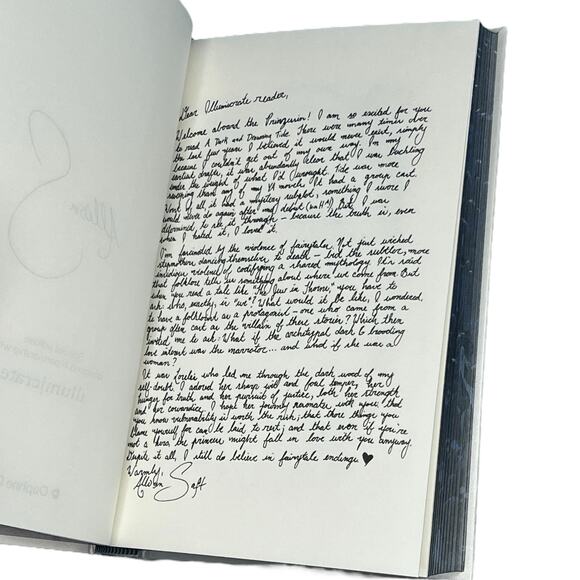 Dear Illumicrate reader,
Welcome aboard the Prinzessin! I am so excited for you
to read A Dark and Drowning Tide. There were many times over
the last few years I believed it would never exist, simply
because I couldn't get out of my own way. In my
earliest drafts, it was abundantly clear that I was buckling
under the weight of what I'd wrought. Tide was more
than any of my YA novels. It had a group cast.
Worst of all, it had a mystery subplot, something I swore I
would never do again after my debut. But I was
determined to see it through – because the truth is, even
when I hated it, I loved it.
I am fascinated by the violence of fairytales. Not just wicked
stepmothers dancing themselves to death – but the subtler, more
insidious violence of codifying a shared mythology. It's said
that folklore tells us something about where we came from. But
when you read a tale like "The Jew in Thorns," you have to
ask: who, exactly, is "we"? What would it be like, I wondered,
to have a folklorist as a protagonist – one who came from a
group often cast as the villain of these stories? Which then
invited me to ask: What if the archetypal dark & brooding
love interest was the narrator... and what if she was a
woman?
It was Lorelei who led me through the dark wood of my
self-doubt. I adored her sharp wit and foul temper, her
hunger for truth and her pursuit of justice, both her strength
and her cowardice. I hope her journey resonates with you: that
you know vulnerability is worth the risk; that those things you
blame yourself for can be laid to rest; and that even if you're
not a hero, the princess might fall in love with you anyway.
Despite it all, I still do believe in fairytale endings ♥
Warmly,
Allison Saft
illumicrate
© Daphne